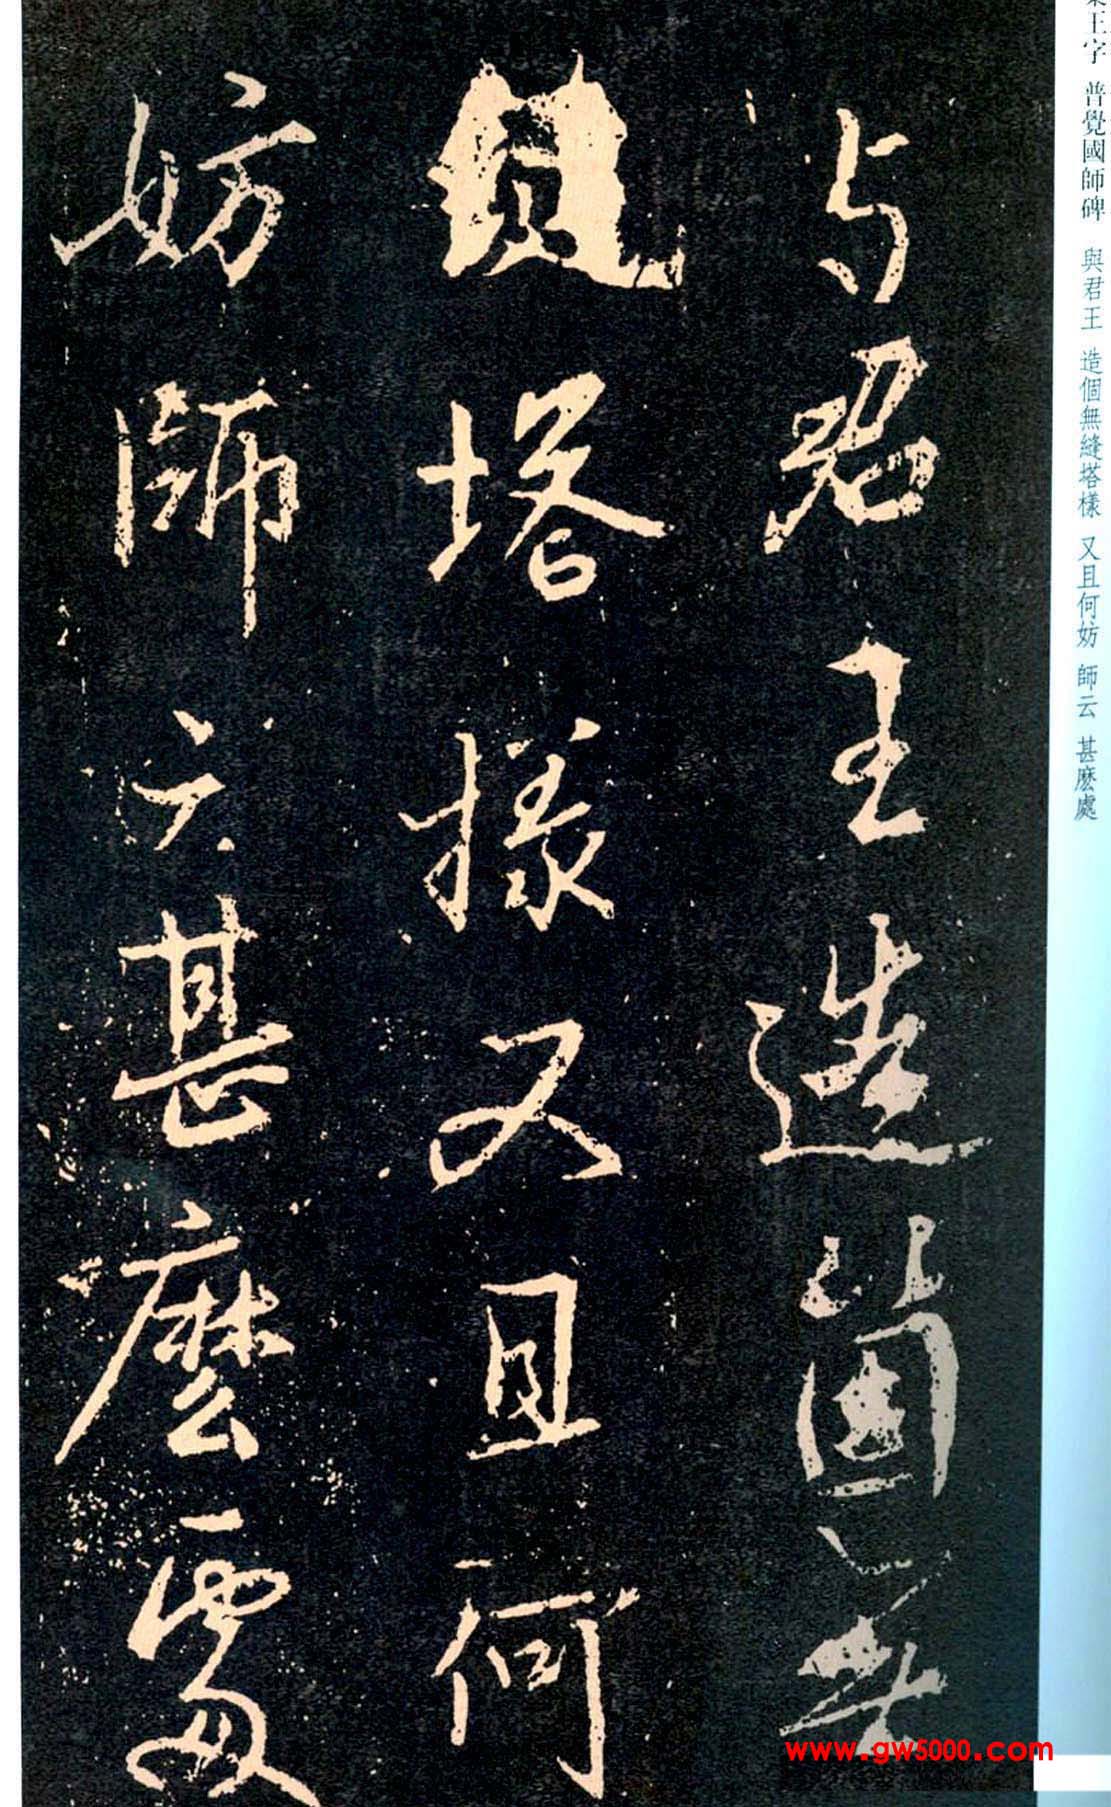 王字 普覺國師碑 與君王 造個無縫塔樣 又且何妨 師云 甚麽處
与君王造箇無
塔樣又且何
妨師云甚麽處
www.gw5000.com